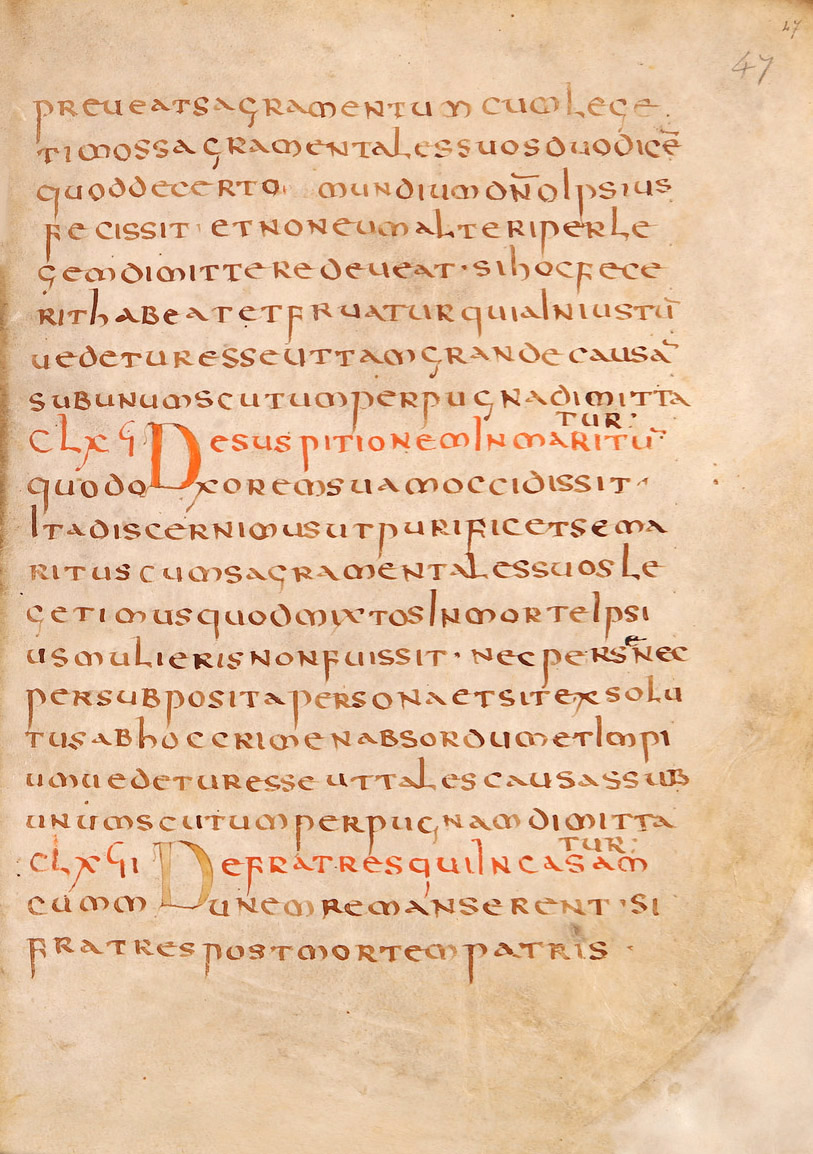 47
47
preueat sacramentum cum lege
timos sacramentales suos duodicē
quod de certo mundium dn̄o Ipsius
fecissit et non eum alteri per le
gem dimittere deueat · si hoc fece
rit habeat et fruatur quia Iniustū
uedetur esse ut tam grande causā
sub unum scutum per pugna dimitta
tur:
CLXG De suspitionem In maritū
quod oxorem suam occidissit ·
Ita discernimus ut purificet se ma
ritus cum sacramentales suos le
getimus quod mixtos In morte Ipsi
us mulieris non fuissit · nec per se nec
per subposita persona et sit exsolu
tus ab hoc crimen absordum et Impi
um uedetur esse ut tales causas sub
unum scutum per pugnam dimitta
tur:
CLXGII De fratres qui In casam
cummunem remanserent · si
fratres post mortem patris ·